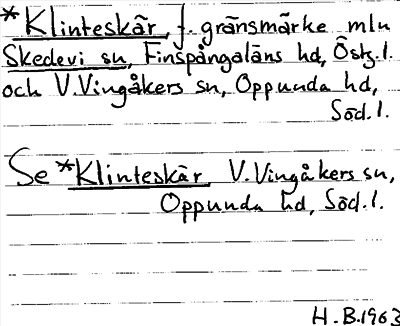 *Klinteskär, f. gränsmärke mln
Skedevi sn, Finspångaläns hd, Östg.l.
och V.Vingåkers sn, Oppunda hd,
Söd.l.
Se *Klinteskär V.Vingåkers sn,
Oppunda hd, Söd.l.
H.B.1963